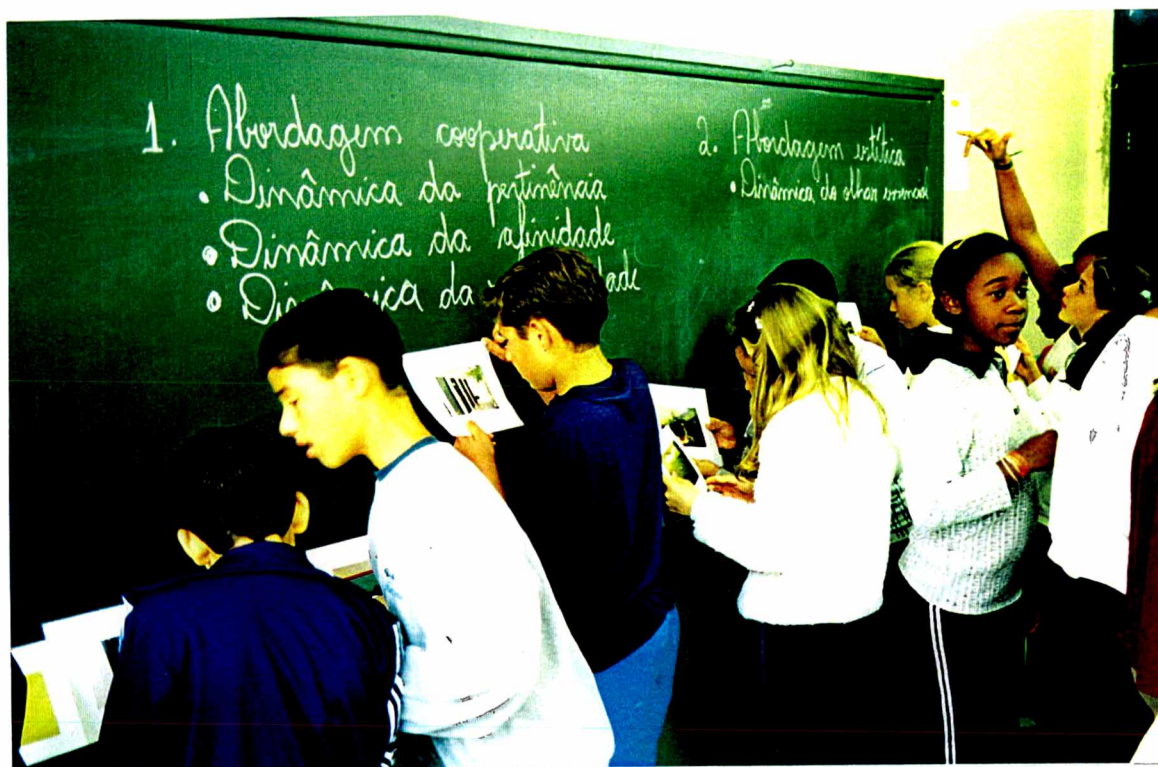 1. Abordagem cooperativa
• Dinâmica da pertinência
• Dinâmica da afinidade
• Dinâmica da
2. Abordagem estética
• Dinâmica do olhar